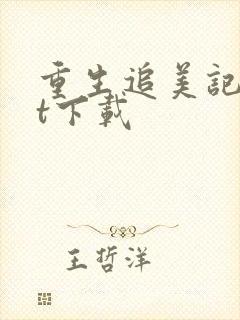 重生追美記
t下載
王哲洋